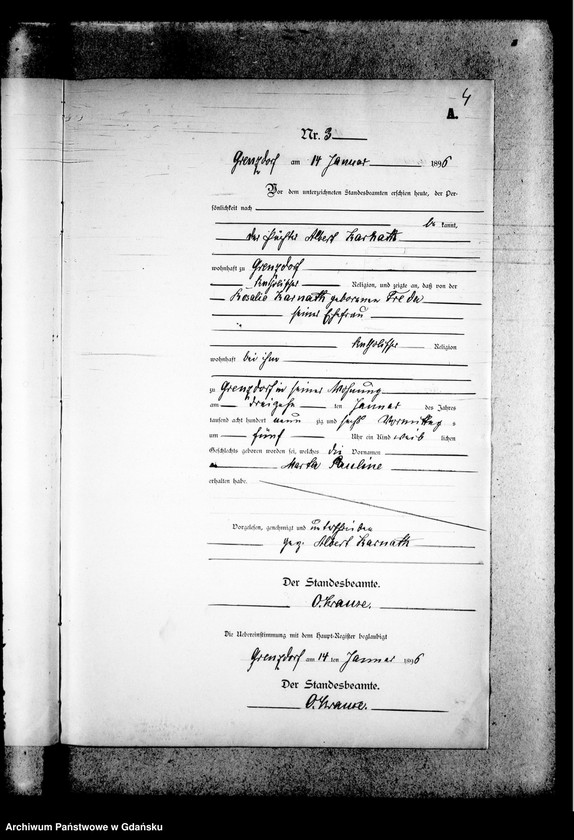 4
A.
Nr. 3
Grenzdorf am 14 Januar 1896
Vor dem unterzeichneten Standesbeamten erschien heute, der Per-
sönlichkeit nach
be kannt,
der Albert Karnath
wohnhaft zu Grenzdorf
katholischer Religion, und zeigte an, daß von der
Rosalie Karnath geborenen Freda
seiner Ehefrau
katholischer Religion
wohnhaft bei ihm
zu Grenzdorf in seiner Wohnung
am dreizehn ten Januar des Jahres
tausend acht hundert neun zig und sechs Vormittags
um fünf Uhr ein Kind weib lichen
Geschlechts geboren worden sei, welches die Vornamen
Martha Pauline
erhalten habe.
Vorgelesen, genehmigt und unterschrieben
gez. Albert Karnath
Der Standesbeamte.
O. Krause.
Die Uebereinstimmung mit dem Haupt-Register beglaubigt
Grenzdorf am 14 ten Januar 1896
Der Standesbeamte.
O. Krause.
Archiwum Państwowe w Gdańsku